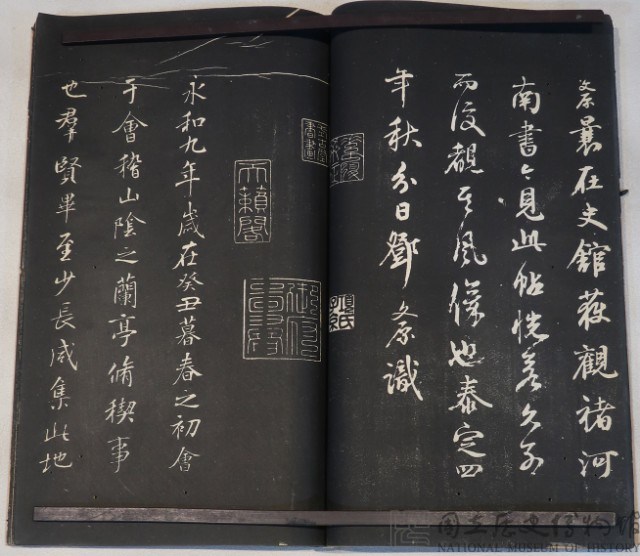 文原曩在史館獲觀褚河
南書今見此帖恍若久別
而復覩其風儀也泰定四
年秋分日鄧文原識
天籟閣
永和九年歲在癸丑暮春之初會
于會稽山陰之蘭亭脩稧事
也羣賢畢至少長咸集此地
國立歷史博物館
NATIONAL MUSEUM OF HISTORY